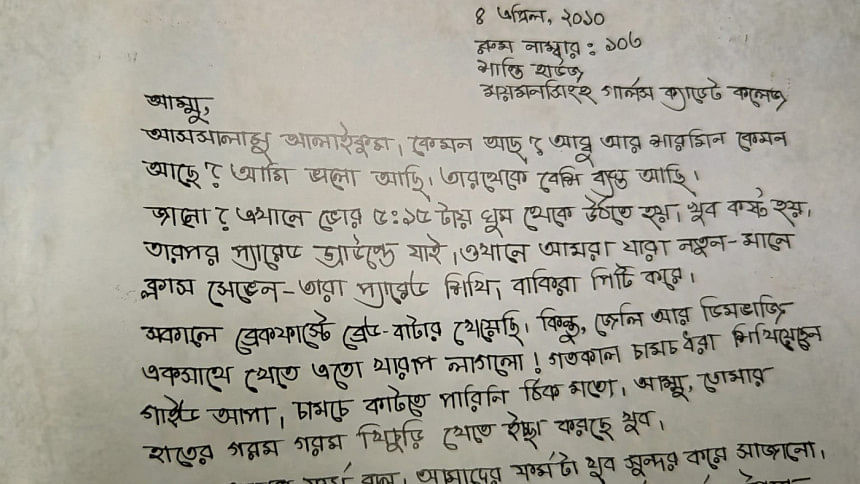 ৪ এপ্রিল, ২০১০
রুম নাম্বার : ১০৬
শান্তি হাউজ
ময়মনসিংহ গার্লস ক্যাডেট কলেজ
আম্মু,
আসসালামু আলাইকুম। কেমন আছ? আব্বু আর শারমিন কেমন
আছে? আমি ভালো আছি। তারথেকে বেশি ব্যস্ত আছি।
জানো? এখানে ভোর ৫:১৫ টায় ঘুম থেকে উঠতে হয়। খুব কষ্ট হয়।
তারপর প্যারেড গ্রাউন্ডে যাই। ওখানে আমরা যারা নতুন-মানে
ক্লাস সেভেন-তারা প্যারেড শিখি, বাকিরা পিটি করে।
সকালে ব্রেকফাস্টে ব্রেড-বাটার খেয়েছি। কিন্তু, জেলি আর ডিমভাজি
একসাথে খেতে এতো খারাপ লাগলো! গতকাল চামচ ধরা শিখিয়েছেন
গাইড আপা, চামচে কাটতে পারিনি ঠিক মতো। আম্মু, তোমার
হাতের গরম গরম খিচুড়ি খেতে ইচ্ছা করছে খুব।
আমাদের ফর্মটা খুব সুন্দর করে সাজানো।